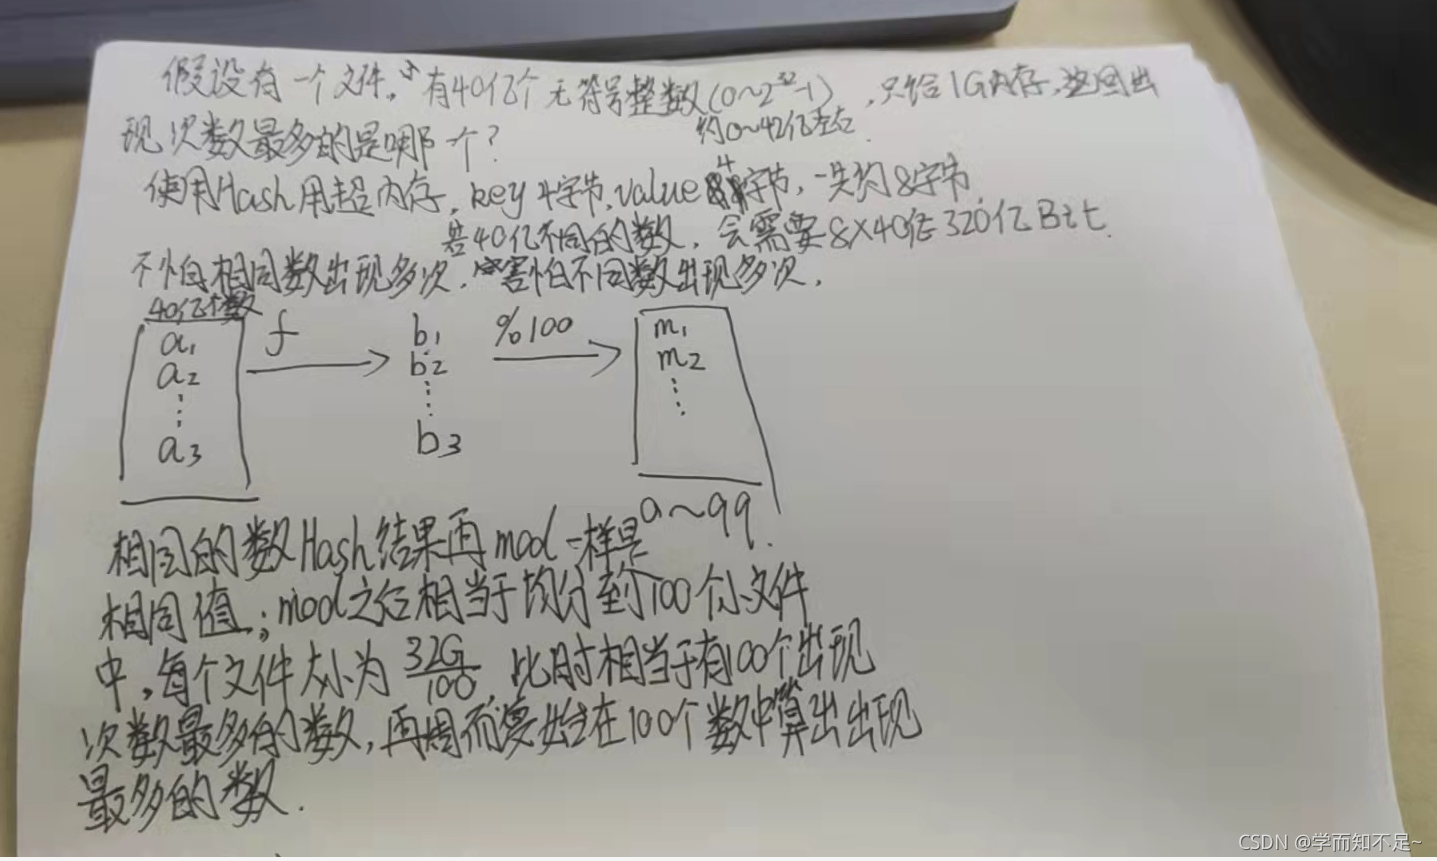 假设有一个文件,有40亿个无符号整数(0~2^32-1),只给1G内存,返回出
约0~42亿左右
现次数最多的是哪一个?
使用Hash用超内存,key 4字节,value 4字节,一共约8字节,
若40亿不同的数,会需要8×40亿 320亿Bit.
不怕相同数出现多次,害怕不同数出现多次,
40亿个数
a1 f b1 %100 m1
a2 b2 m2
a3 b3
0~99
相同的数Hash结果再mod一样是
相同值;mod之后相当于均分到100个小文件
中,每个文件大小为 32G/100,此时相当于有100个出现
次数最多的数,再周而复始在100个数中算出出现
最多的数.
CSDN @学而知不足~